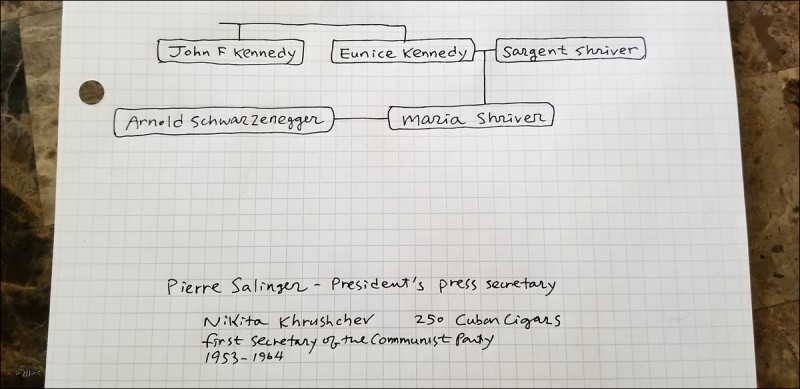 John F Kennedy
Eunice Kennedy
Sargent Shriver
Arnold Schwarzenegger
Maria Shriver
Pierre Salinger - President's press secretary
Nikita Khrushchev 250 Cuban Cigars
first secretary of the Communist Party
1953-1964